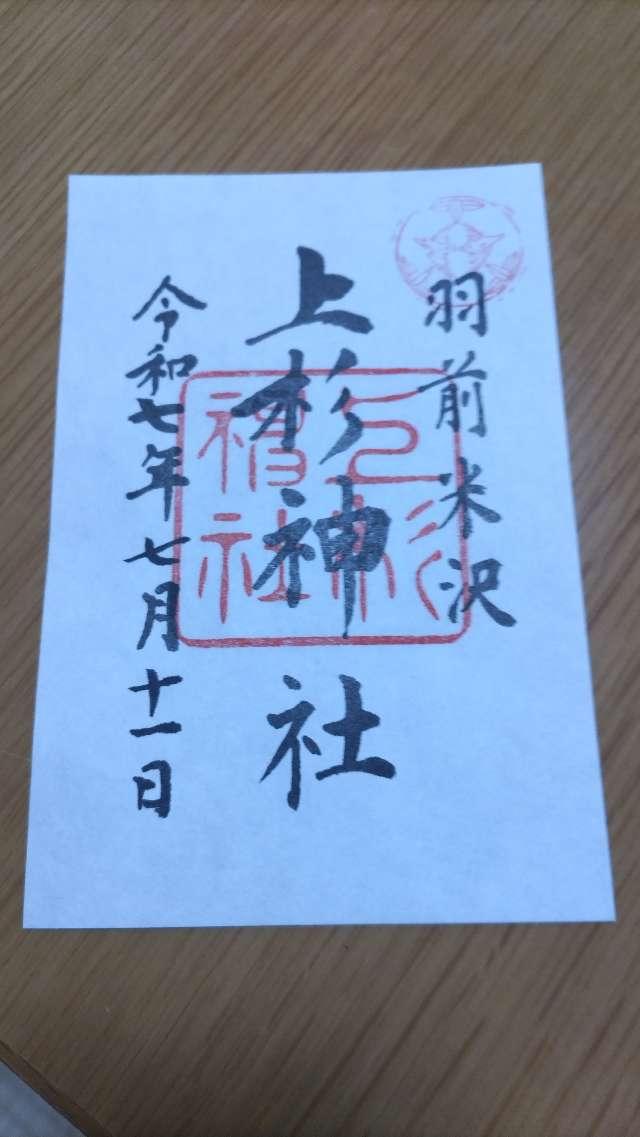 羽前米沢
上杉神社
令和七年七月十一日
上杉神社